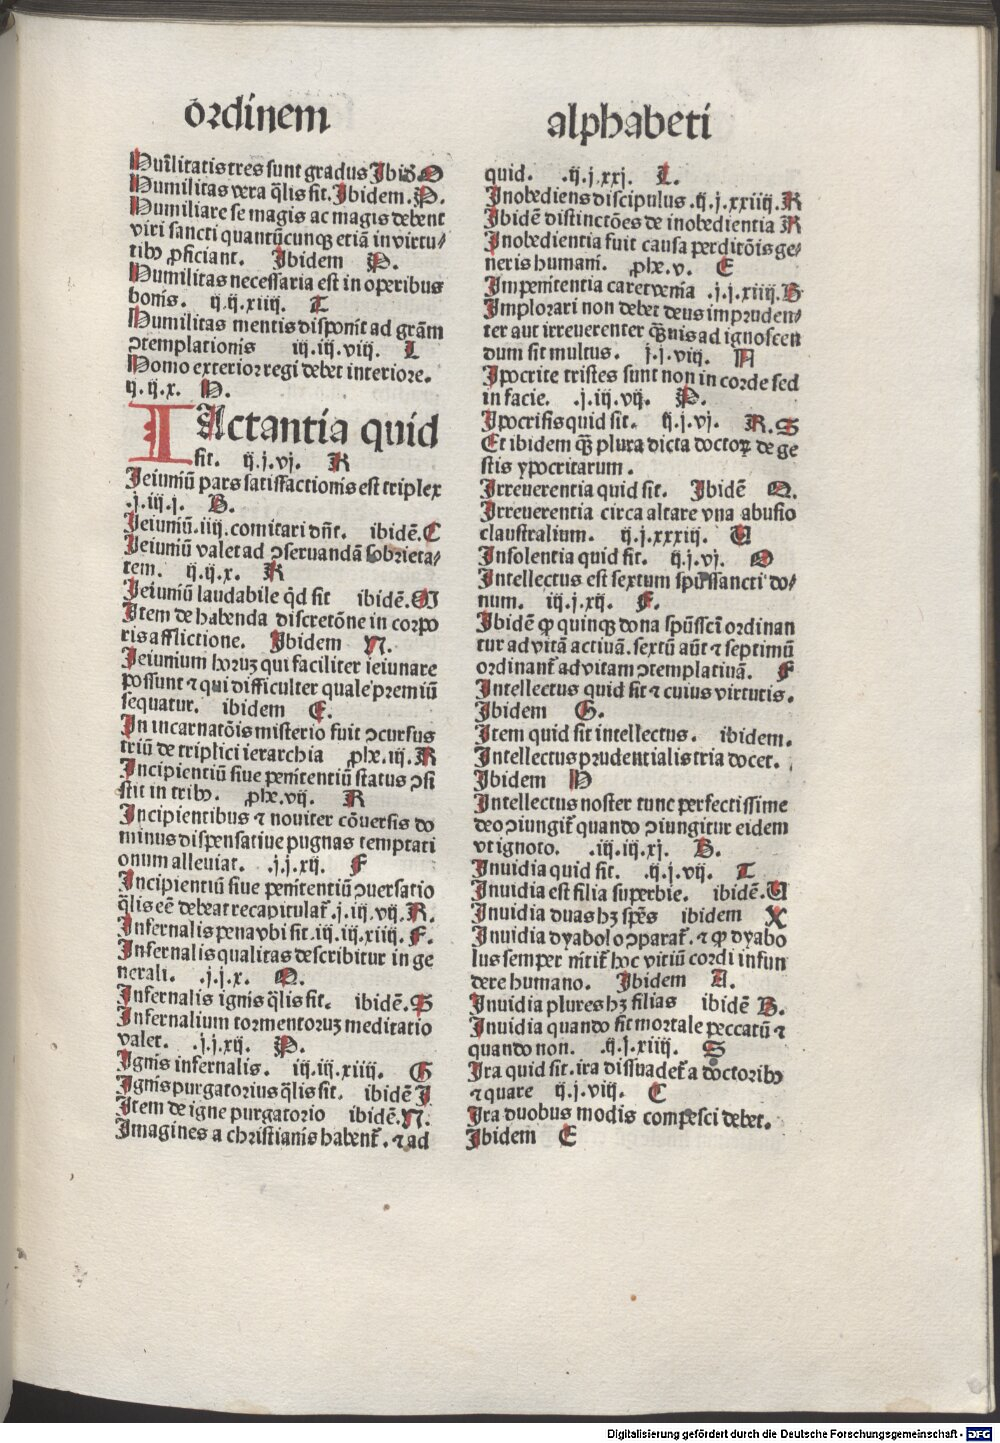 ordinem alphabeti
Hūilitatis tres sunt gradus Ibidē O
Humilitas vera q̄lis sit. Ibidem. P.
Humiliare se magis ac magis debent
viri sancti quantūcunqꝫ etiā in virtu⸗
tibꝰ ꝓficiant. Ibidem P.
Humilitas necessaria est in operibus
bonis. ij.ij.xiiij. T
Humilitas mentis disponit ad grām
ↄtemplationis iij.iij.viij. L
Homo exterior regi debet interiore.
ij.ij.x. H.
IActantia quid
sit. ij.j.vj. R
Ieiuniū pars satisfactionis est triplex
.j.iij.j. B.
Ieiuniū.iiij.comitari dn̄t. ibidē. C
Ieiuniū valet ad ↄseruandā sobrieta⸗
tem. ij.ij.x. K
Ieiuniū laudabile q̄d sit ibidē. M
Item de habenda discretōne in corpo
ris afflictione. Ibidem N.
Ieiunium horuꝫ qui faciliter ieiunare
possunt ⁊ qui difficulter quale premiū
sequatur. ibidem E.
In incarnatōis misterio fuit ↄcursus
triū de triplici ierarchia ꝓhe.iij. R
Incipientiū siue penitentiū status ↄsi
stit in tribꝰ. ꝓhe.vij. R
Incipientibus ⁊ nouiter cōuersis do
minus dispensatiue pugnas temptati
onum alleuiat. .j.j.xij. F
Incipientiū siue penitentiū ↄuersatio
q̄lis eē debeat recapitulat᷑.j.iij.vij. R.
Infernalis pena vbi sit.iij.iij.xiiij. F.
Infernalis qualitas describitur in ge
nerali. .j.j.x. Q.
Infernalis ignis q̄lis sit. ibidē. S
Infernalium tormentoruꝫ meditatio
valet. .j.j.xij. P.
Ignis infernalis. iij.iij.xiiij. G
Ignis purgatorius q̄lis sit. ibidē I
Item de igne purgatorio ibidē. N.
Imagines a christianis habent᷑. ⁊ ad
quid. .ij.j.xxj. L.
Inobediens discipulus .ij.j.xxiiij. R
Ibidē distinctōes de inobedientia R
Inobedientia fuit causa perditōis ge⸗
neris humani. ꝓhe.v. E
Impenitentia caret venia .j.j.xiiij. B
Implorari non debet deus impruden⸗
ter aut irreuerenter q̄uis ad ignoscen
dum sit multus. j.j.viij. A
Ipocrite tristes sunt non in corde sed
in facie. .j.iij.vij. P.
Ipocrisis quid sit. ij.j.vj. R. S
Et ibidem q̄ plura dicta doctoꝝ de ge
stis ypocritarum.
Irreuerentia quid sit. Ibidē Q.
Irreuerentia circa altare vna abusio
claustralium. ij.j.xxxiij. U
Insolentia quid sit. ij.j.vj. O
Intellectus est sextum spūssancti do⸗
num. iij.j.xij. F.
Ibidē ꝙ quinqꝫ dona spūssc̄i ordinan
tur ad vitā actiuā.sextū aūt ⁊ septimū
ordinant᷑ ad vitam ↄtemplatiuā. F
Intellectus quid sit ⁊ cuius virtutis.
Ibidem G.
Item quid sit intellectus. ibidem.
Intellectus prudentialis tria docet.
Ibidem H
Intellectus noster tunc perfectissime
deo ↄiungit᷑ quando ↄiungitur eidem
vt ignoto. .iij.iij.xj. B.
Inuidia quid sit. .ij.j.vij. T
Inuidia est filia superbie. ibidē. U
Inuidia duas hꝫ spēs ibidem X
Inuidia dyabolo ↄparat᷑. ⁊ ꝙ dyabo
lus semper nitit᷑ hoc vitiū cordi infun
dere humano. Ibidem A.
Inuidia plures hꝫ filias ibidē B.
Inuidia quando sit mortale peccatū ⁊
quando non. .ij.j.xiiij. S
Ira quid sit.ira dissuadet᷑ a doctoribꝰ
⁊ quare ij.j.viij. C
Ira duobus modis compesci debet.
Ibidem E
Digitalisierung gefördert durch die Deutsche Forschungsgemeinschaft - DFG